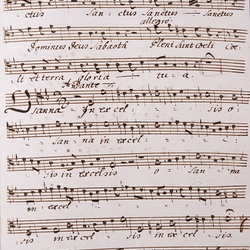 ctus Sanctus Sanctus
allegro
Dominus Deus Sabaoth Pleni sunt Coeli coe
li et terra gloria tua
Andante
Osanna In excelsis o
sanna in excel
sis in excelsis o sanna
in excel
sis in excelsis